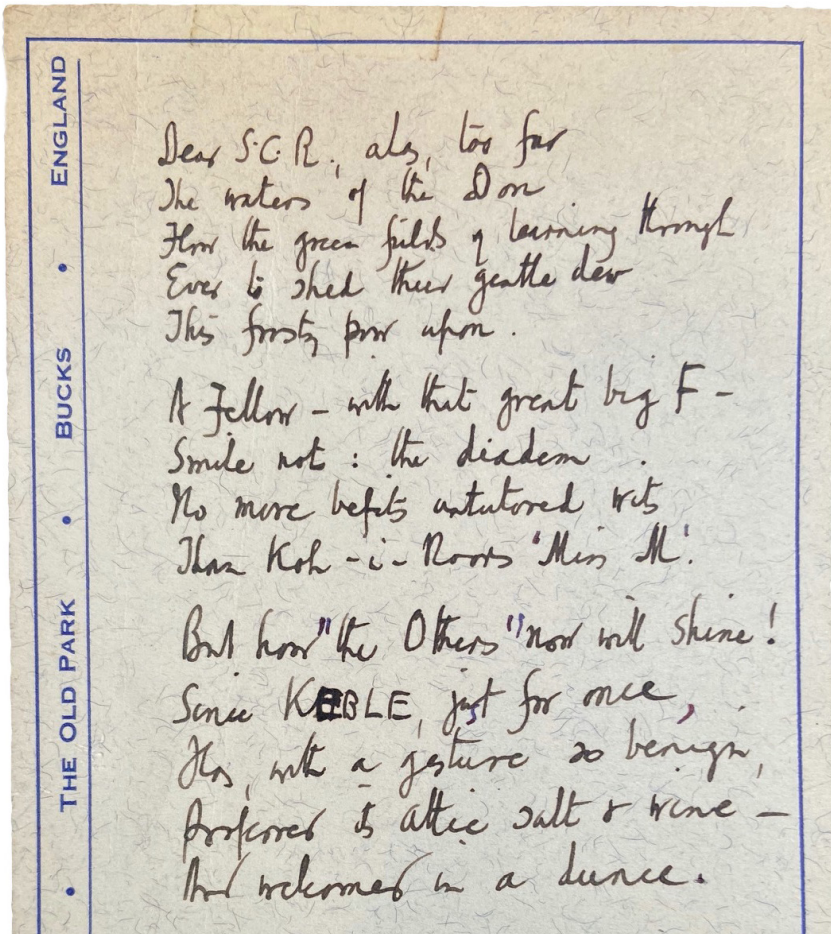 ENGLAND
BUCKS
THE OLD PARK
Dear S.C.R., alas, too far
The waters of the Don
Flow the green fields of learning through
Ever to shed their gentle dew
This frosty pow upon.
A Fellow – with that great big F –
Smile not : the diadem
No more befits untutored wits
Than Koh-i-Noors 'Miss M'.
But how "the Others" now will shine!
Since KEBLE, just for once,
Has, with a gesture so benign,
Proffered its attic salt & wine –
And welcomed in a dunce.